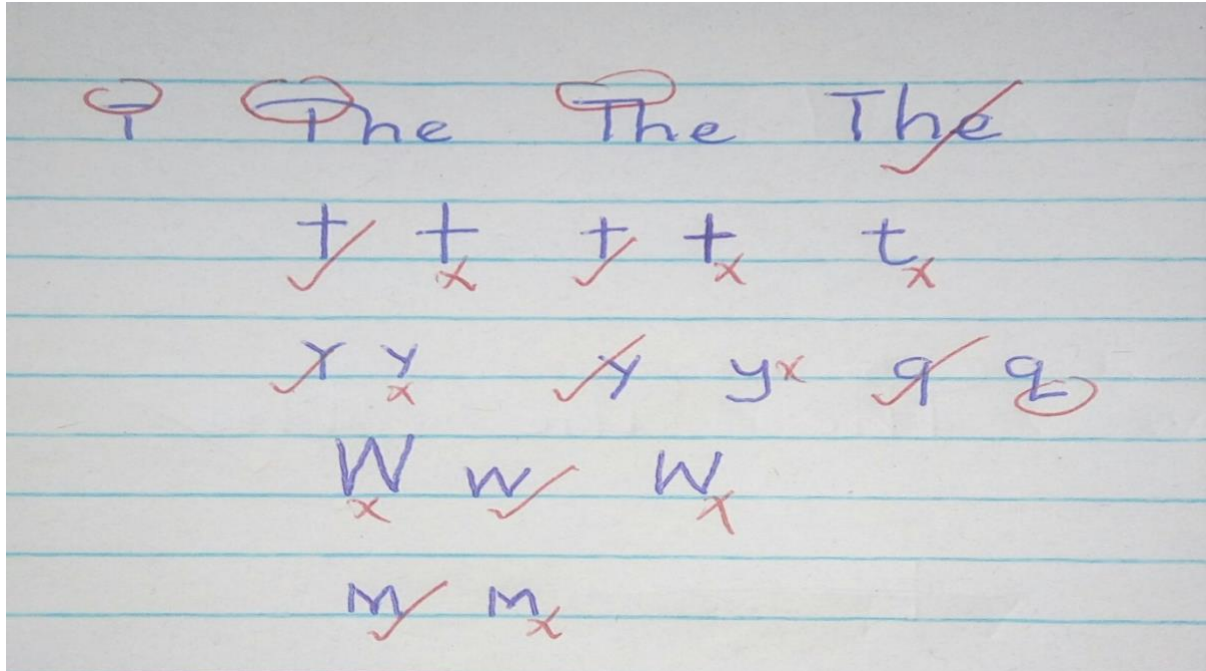 T The The The
t t t t t
Y y y y q q
W w W
m m